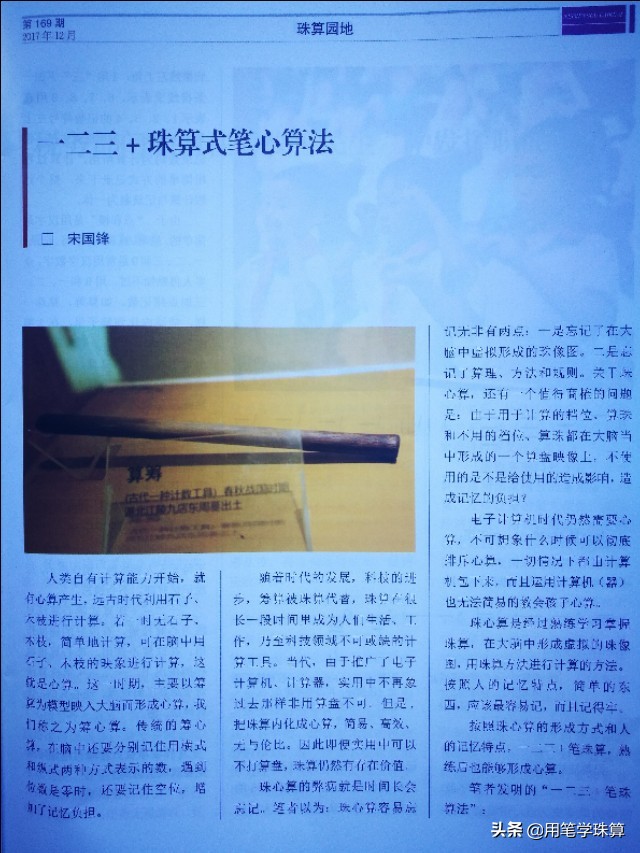 第 169 期
2017 年 12 月
珠算园地
一二三 + 珠算式笔心算法
□ 宋国锋
算筹
(古代一种计数工具) 春秋战国时期
湖北江陵九店东周墓出土
人类自有计算能力开始，就
有心算产生，远古时代利用石子、
木枝进行计算。若一时无石子、
木枝，简单地计算，可在脑中用
石子、木枝的映象进行计算，这
就是心算。这一时期，主要以筹
算为模型映入大脑而形成心算，我
们称之为筹心算；传统的筹心
算，在脑中还要分别记住用横式
和纵式两种方式表示的数，遇到
某数是零时，还要记住空位，增
加了记忆负担。
随着时代的发展，科技的进
步，筹算被珠算代替，珠算在很
长一段时间里成为人们生活、工
作，乃至科技领域不可或缺的计
算工具。当代，由于推广了电子
计算机、计算器，实用中不再象
过去那样非用算盘不可，但是，
把珠算内化成心算，简易、高效、
无与伦比。因此即使实用中可以
不打算盘，珠算仍然有存在价值。
珠心算的弊病就是时间长会
忘记。笔者以为：珠心算容易忘
记无非有两点：一是忘记了在大
脑中虚拟形成的珠像图。二是忘
记了算理、方法和规则。关于珠
心算，还有一个值得商榷的问题
是：由于用于计算的档位、算珠
和不用的档位、算珠都在大脑当
中形成的一个算盘映像上，不使
用的是不是给使用的造成影响，造
成记忆的负担？
电子计算机时代仍然需要心
算，不可想象什么时候可以彻底
排斥心算，一切情况下都由计算
机包下来，而且运用计算机（器）
也无法简易的教会孩子心算。
珠心算是经过熟练学习掌握
珠算，在大脑中形成虚拟的珠像
图，用珠算方法进行计算的方法。
按照人的记忆特点，简单的东
西，应该最容易记，而且记得牢。
按照珠心算的形成方式和人
的记忆特点，一二三）笔珠算，熟
练后也能够形成心算。
笔者发明的“一二三）笔珠
算法”：
头条 @用笔学珠算